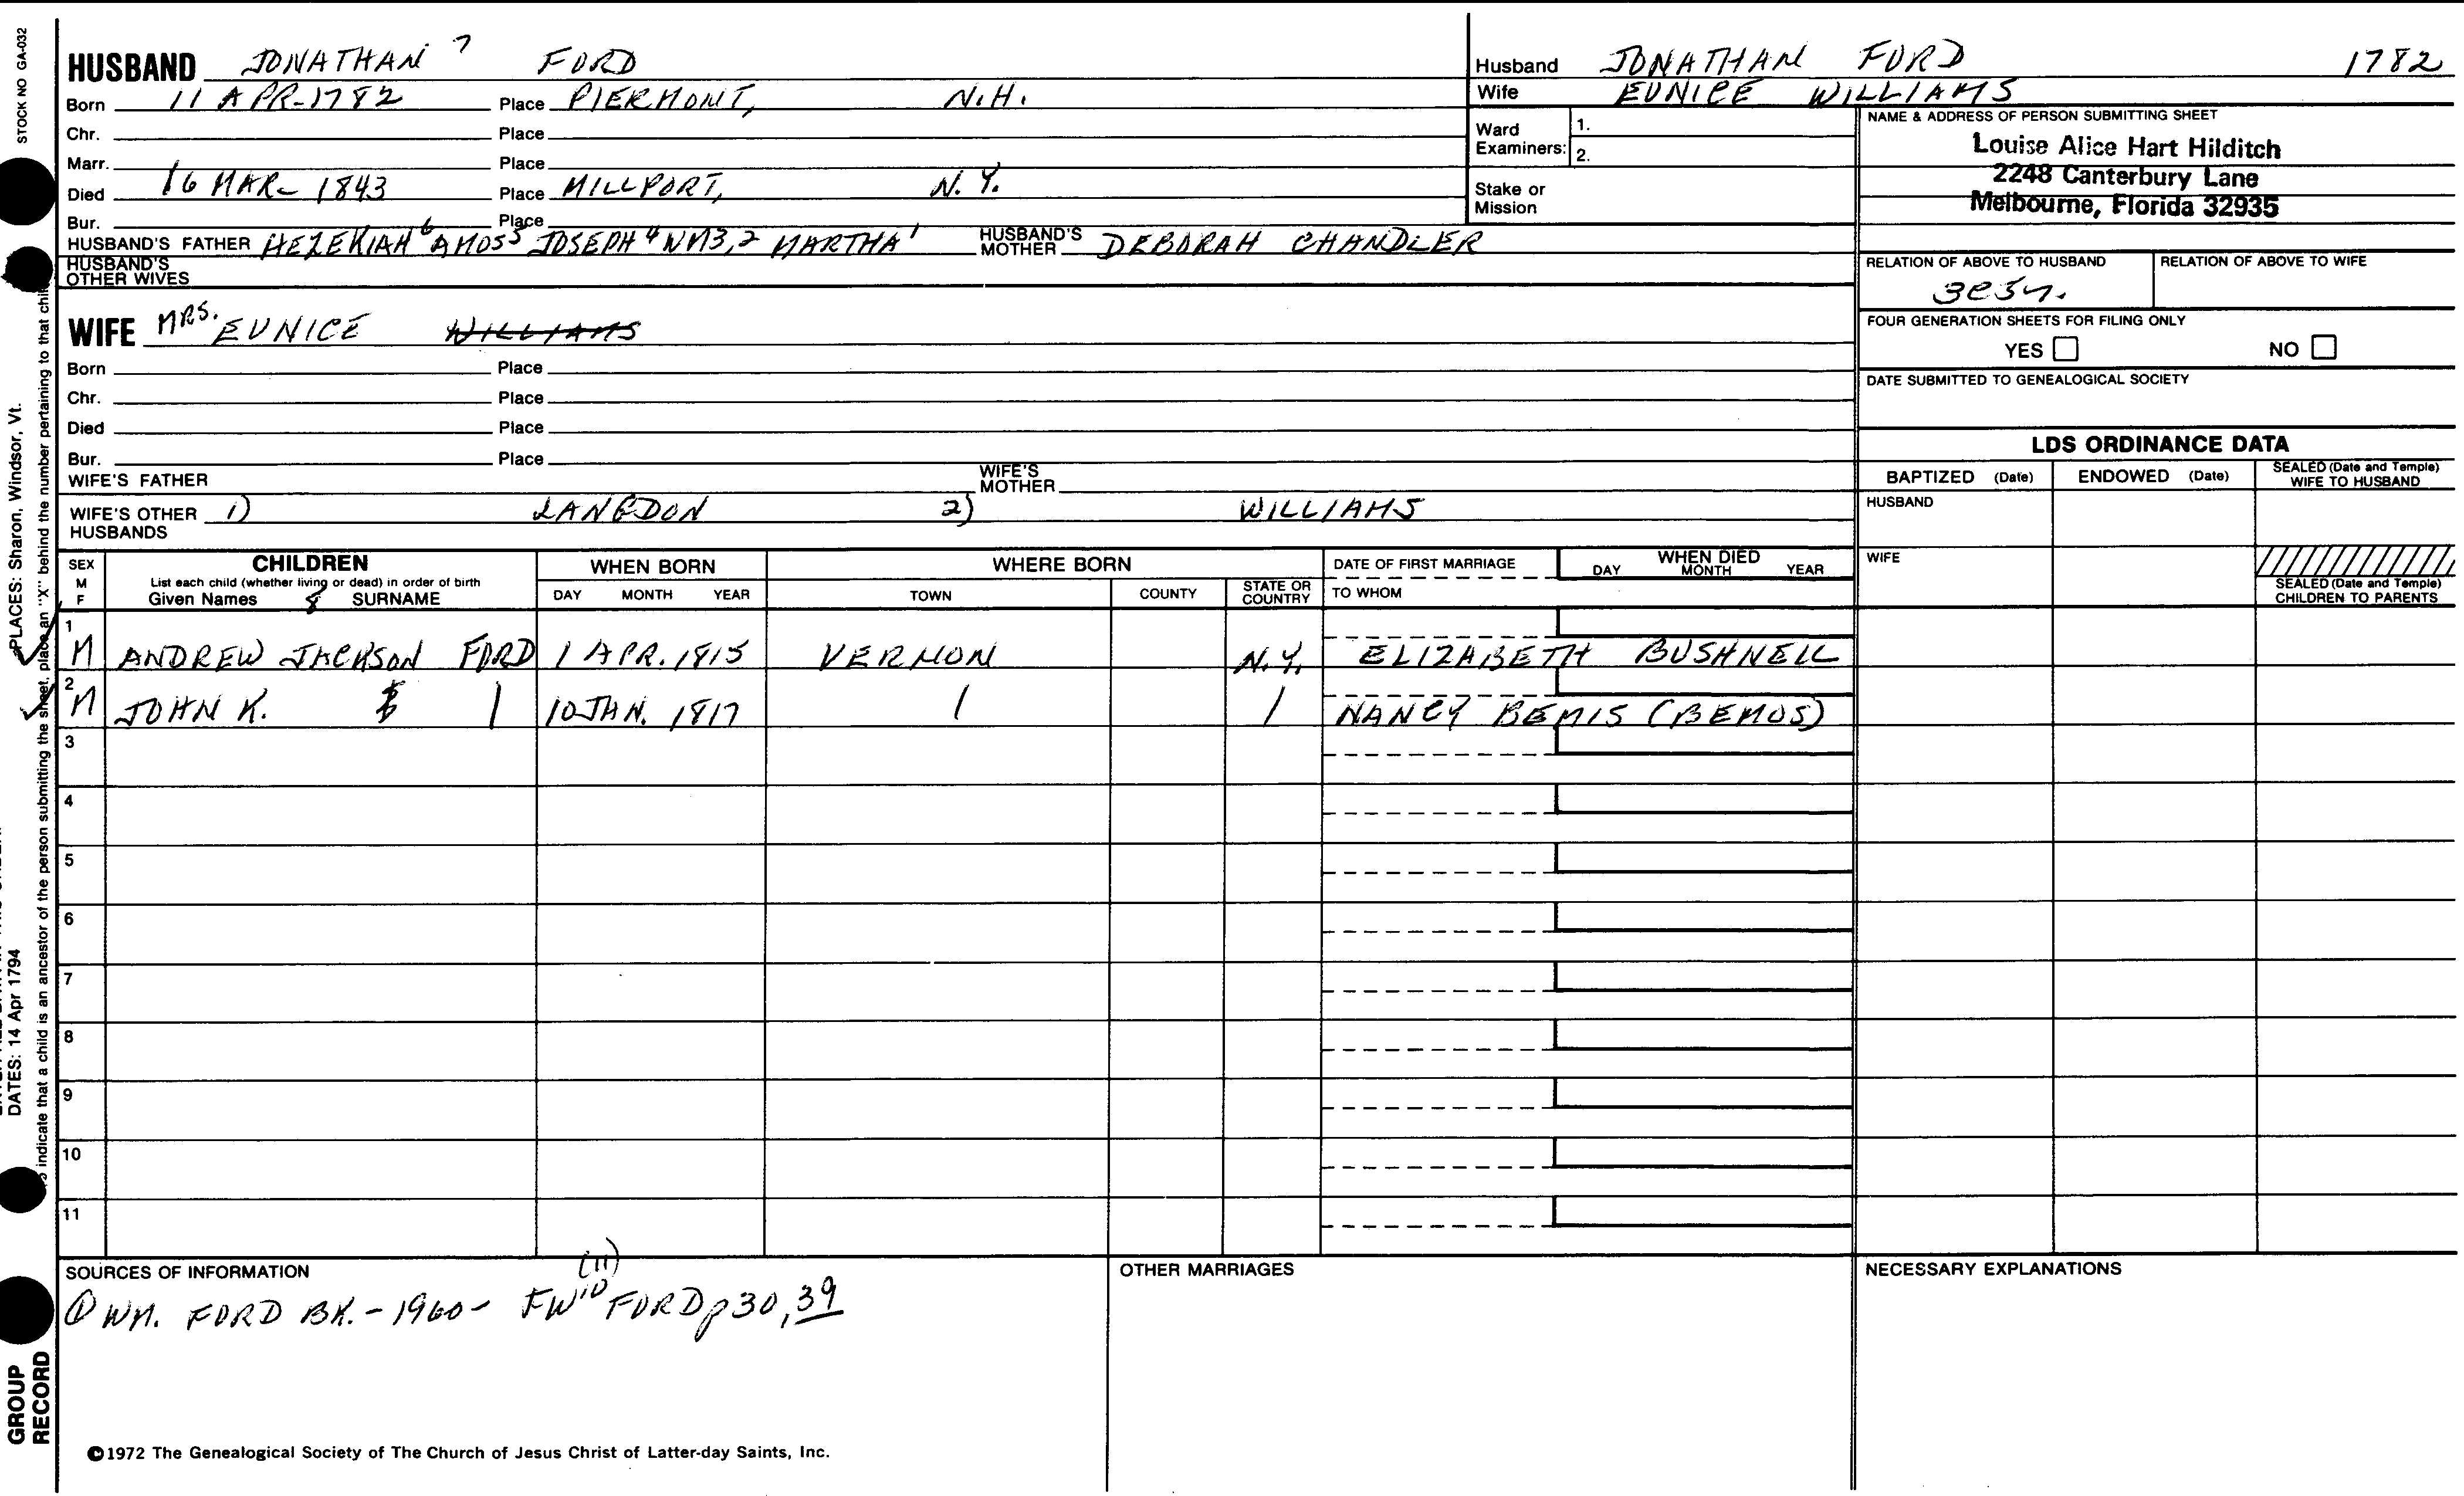 STOCK NO GA-032
HUSBAND JONATHAN 7 FORD
Born 11 APR-1782 Place PIERMONT, N.H.
Chr. Place
Marr. Place
Died 16 MAR- 1843 Place MILLPORT, N.Y.
Bur. Place
HUSBAND'S FATHER HEZEKIAH 6 AMOS 5 JOSEPH 4 WM3,2 MARTHA 1 HUSBAND'S MOTHER DEBORAH CHANDLER
HUSBAND'S
OTHER WIVES
WIFE MRS. EUNICE WILLIAMS
Born Place
Chr. Place
Died Place
Bur. Place
WIFE'S FATHER WIFE'S MOTHER
WIFE'S OTHER HUSBANDS 1) LANGDON 2) WILLIAMS
Husband JONATHAN FORD 1782
Wife EUNICE WILLIAMS
Ward Examiners: 1.
2.
Stake or
Mission
NAME & ADDRESS OF PERSON SUBMITTING SHEET
Louise Alice Hart Hilditch
2248 Canterbury Lane
Melbourne, Florida 32935
RELATION OF ABOVE TO HUSBAND RELATION OF ABOVE TO WIFE
FOUR GENERATION SHEETS FOR FILING ONLY
YES NO
DATE SUBMITTED TO GENEALOGICAL SOCIETY
LDS ORDINANCE DATA
BAPTIZED (Date) ENDOWED (Date) SEALED (Date and Temple) WIFE TO HUSBAND
HUSBAND
WIFE
SEALED (Date and Temple)
CHILDREN TO PARENTS
SEX M F
CHILDREN
List each child (whether living or dead) in order of birth
Given Names 8 SURNAME
WHEN BORN
DAY MONTH YEAR
WHERE BORN
TOWN COUNTY STATE OR COUNTRY
DATE OF FIRST MARRIAGE
TO WHOM
WHEN DIED
DAY MONTH YEAR
1 M ANDREW JACKSON FORD 1 APR. 1815 VERNON N.Y. ELIZABETH BUSHNELL
2 M JOHN K. 10 JAN. 1817 NANCY BEMIS (BEMOS)
3
4
5
6
7
8
9
10
11
SOURCES OF INFORMATION
(11)
① WM. FORD BK. - 1960 - FW 10 FORD p 30, 39
OTHER MARRIAGES
NECESSARY EXPLANATIONS
©1972 The Genealogical Society of The Church of Jesus Christ of Latter-day Saints, Inc.
PLACES: Sharon, Windsor, Vt.
DATES: 14 Apr 1794
indicate that a child is an ancestor of the person submitting the sheet, place an "X" behind the number pertaining to that
GROUP
RECORD